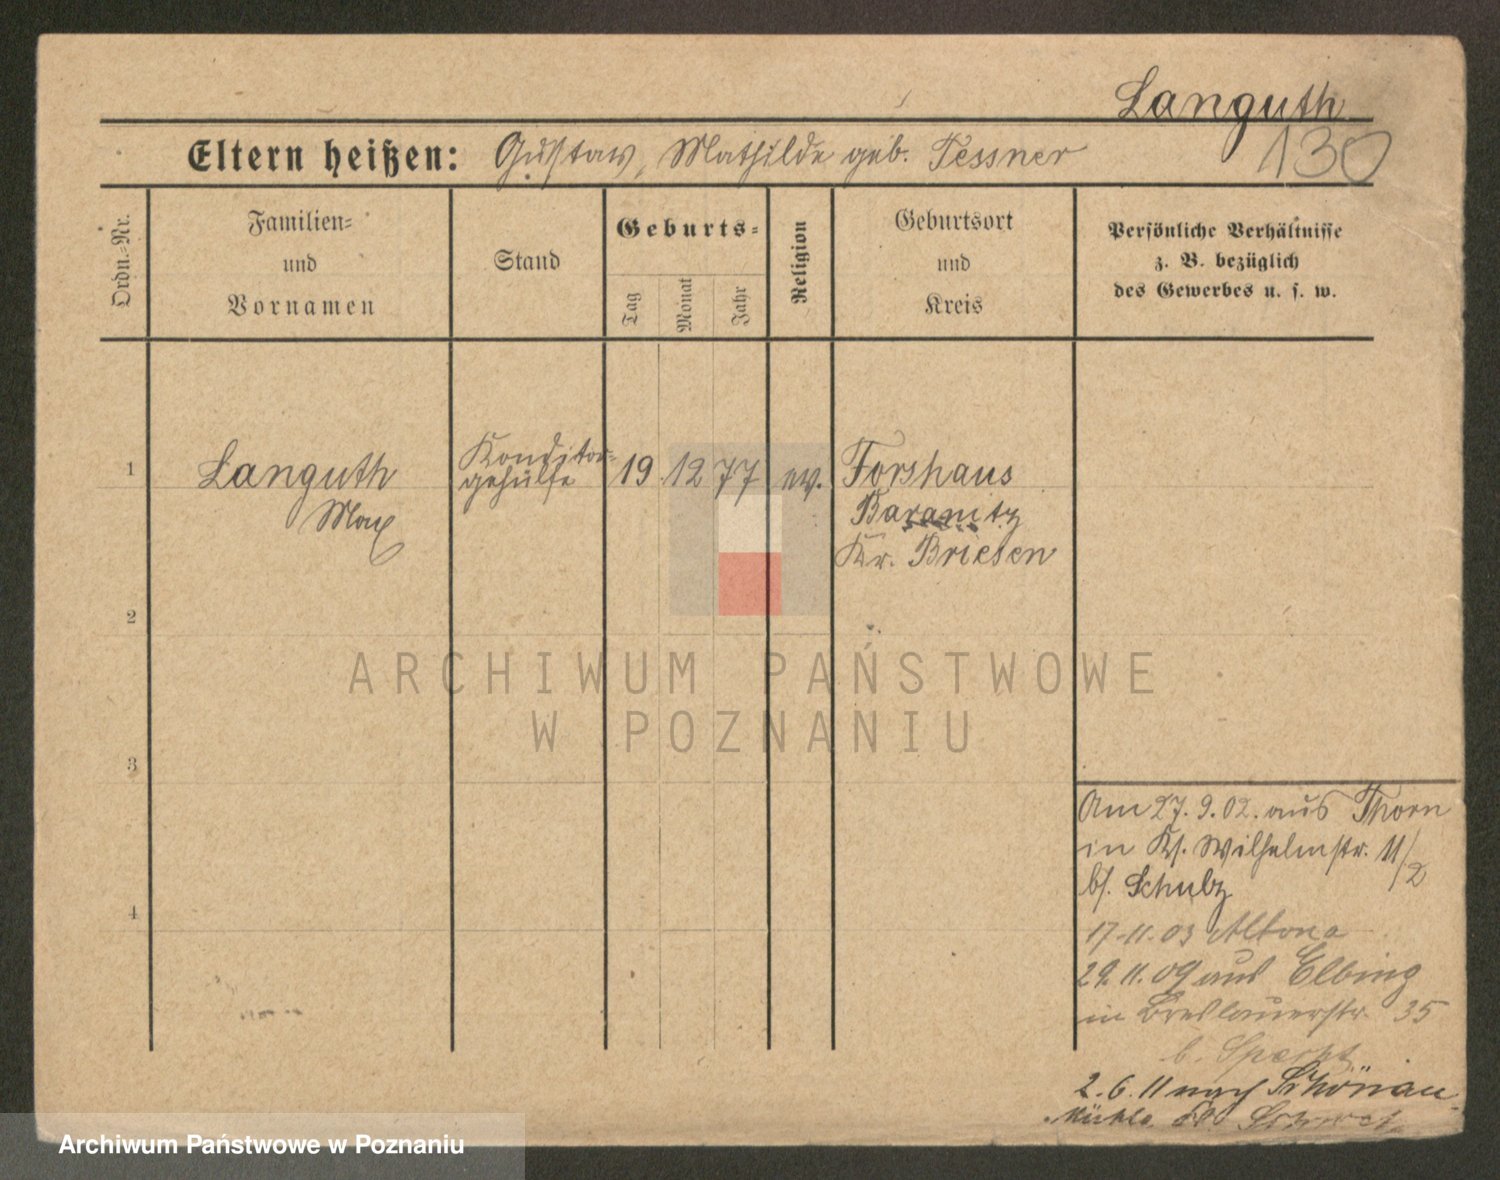 Languth
130
Eltern heißen: Gustav, Mathilde geb. Tessner
Ordn.-Nr.
Familien-
und
Vornamen
Stand
Geburts-
Tag
Monat
Jahr
Religion
Geburtsort
und
Kreis
Persönliche Verhältnisse
z. B. bezüglich
des Gewerbes u. s. w.
1
Languth
Max
Konditor-
gehülfe
19 12 77
ev.
Forshaus
Baranitz
Kr. Briesen
2
3
4
Am 27.9.02. aus Thorn
in Ks. Wilhelmstr. 11/2
bs. Schulz
17.11.03 Altona
29.11.09 aus Elbing
in Breslauerstr. 35
b.
2.6.11 nach Schönau
ARCHIWUM PAŃSTWOWE
W POZNANIU
Archiwum Państwowe w Poznaniu